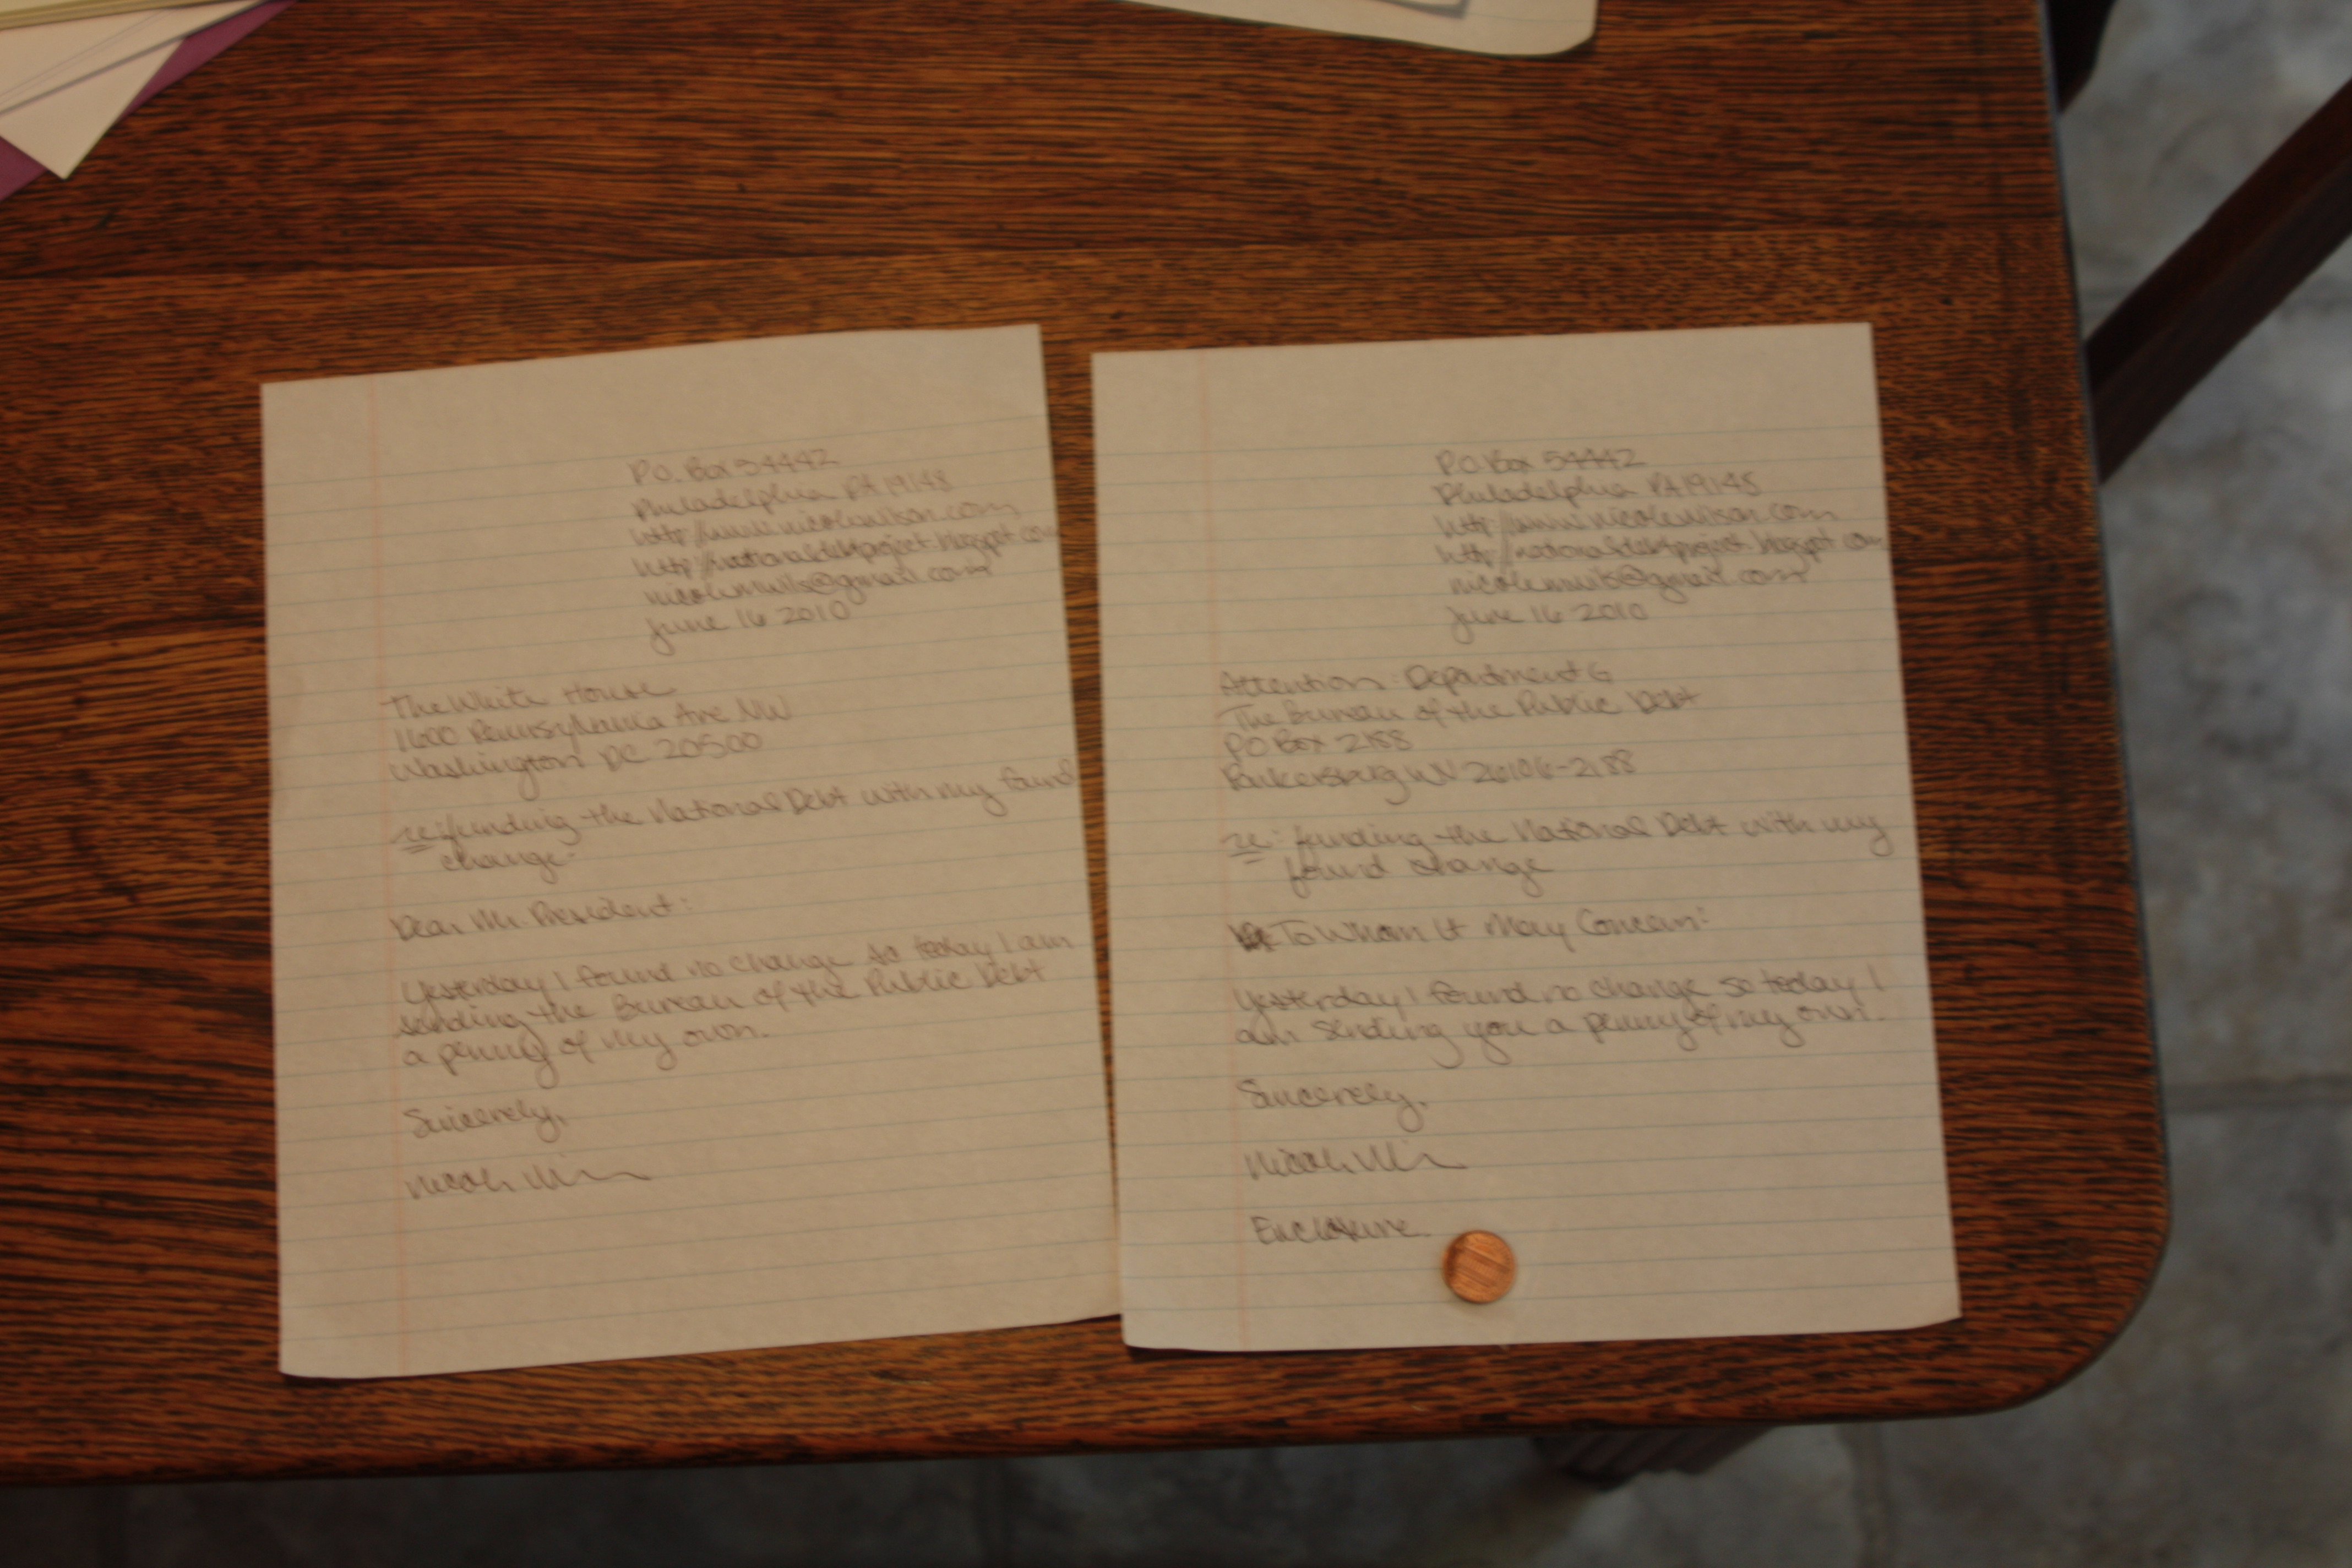 P.O. Box 54442
Philadelphia PA 19148
http://www.nicolewilson.com
http://nationaldebtproject.blogspot.com
@gmail.com
June 16 2010
The White House
1600 Pennsylvania Ave NW
Washington DC 20500
re: funding the National Debt with my found
change.
Dear Mr. President:
Yesterday I found no change so today I am
sending the Bureau of the Public Debt
a penny of my own.
Sincerely,
PO Box 54442
Philadelphia PA 19148
http://www.nicolewilson.com
http://nationaldebtproject.blogspot.com
@gmail.com
June 16 2010
Attention: Department G
The Bureau of the Public Debt
PO Box 2188
Parkersburg WV 26106-2188
re: funding the National Debt with my
found change
To Whom It May Concern:
Yesterday I found no change so today I
am sending you a penny of my own.
Sincerely,
Enclosure.